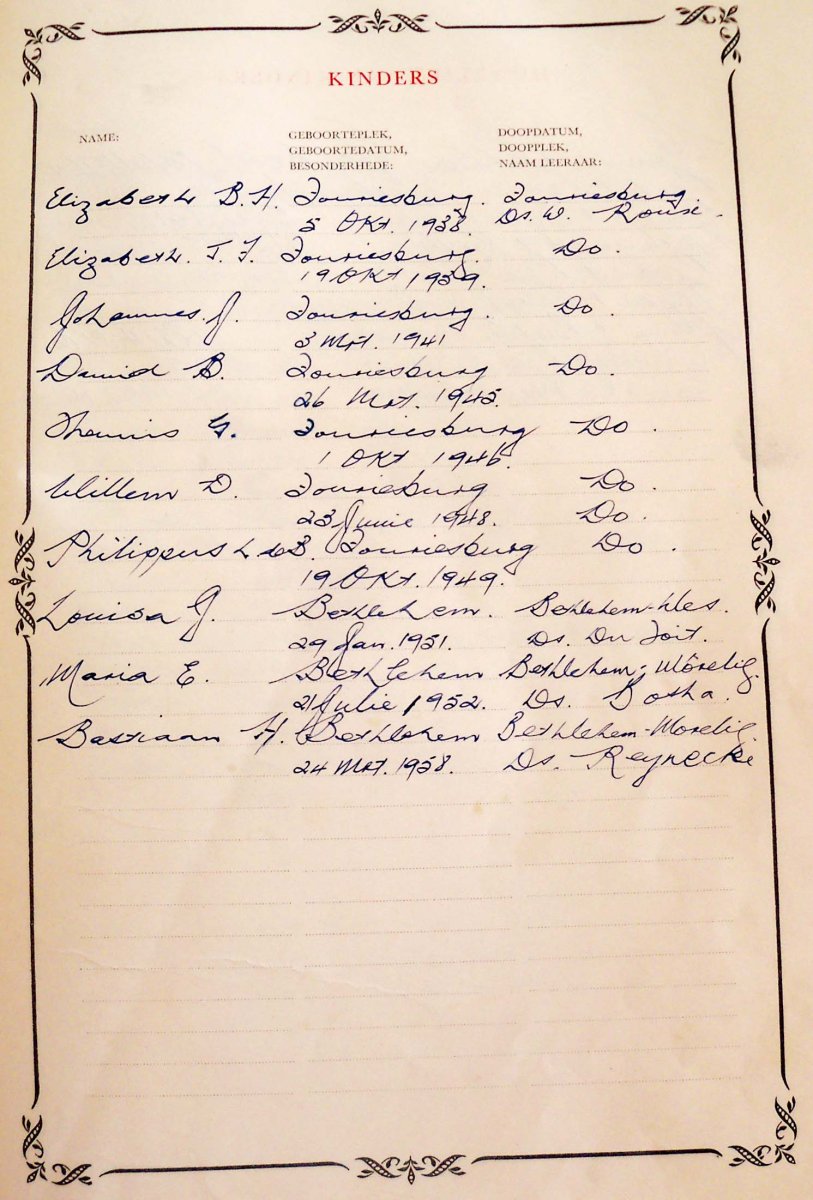 KINDERS
NAME: GEBOORTEPLEK, DOOPDATUM,
GEBOORTEDATUM, DOOPPLEK,
BESONDERHEDE: NAAM LEERAAR:
Elizabeth B. H. Fouriesburg. Fouriesburg.
5 OKT. 1938 Ds. W.
Elizabeth. J. F. Fouriesburg. Do.
19 OKT 1939.
Johannes. J. Fouriesburg. Do.
3 Mrt. 1941
Dawid B. Fouriesburg Do.
26 Mrt. 1945.
Theunis G. Fouriesburg Do.
1 OKT 1946.
Willem D. Fouriesburg Do.
23 Junie 1948. Do.
Philippus L Fouriesburg Do.
19 OKT. 1949.
Louisa J. Bethlehem. Bethlehem-Wes.
29 Jan. 1951. Ds. Du Toit.
Maria E. Bethlehem Bethlehem-Môrelig.
21 Julie 1952. Ds. Botha.
Bastiaan H. Bethlehem Bethlehem-Morelig.
24 Mrt. 1958. Ds. Reynecke